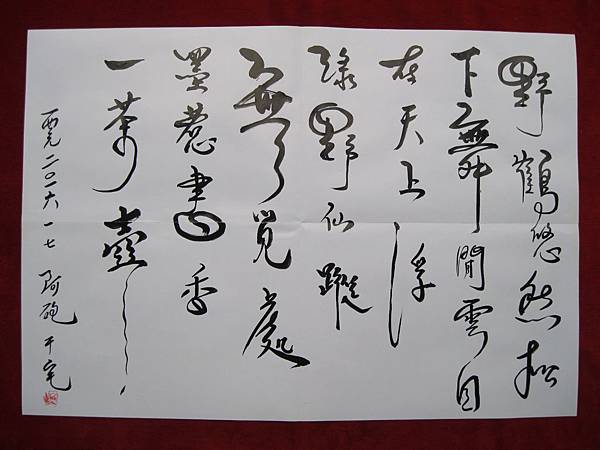 野鶴悠然松
下舞閒雲自
在天上浮
綠野仙蹤
無覓處
墨書香
一茶壺
西元二〇一六 一七 阿砲 于宅